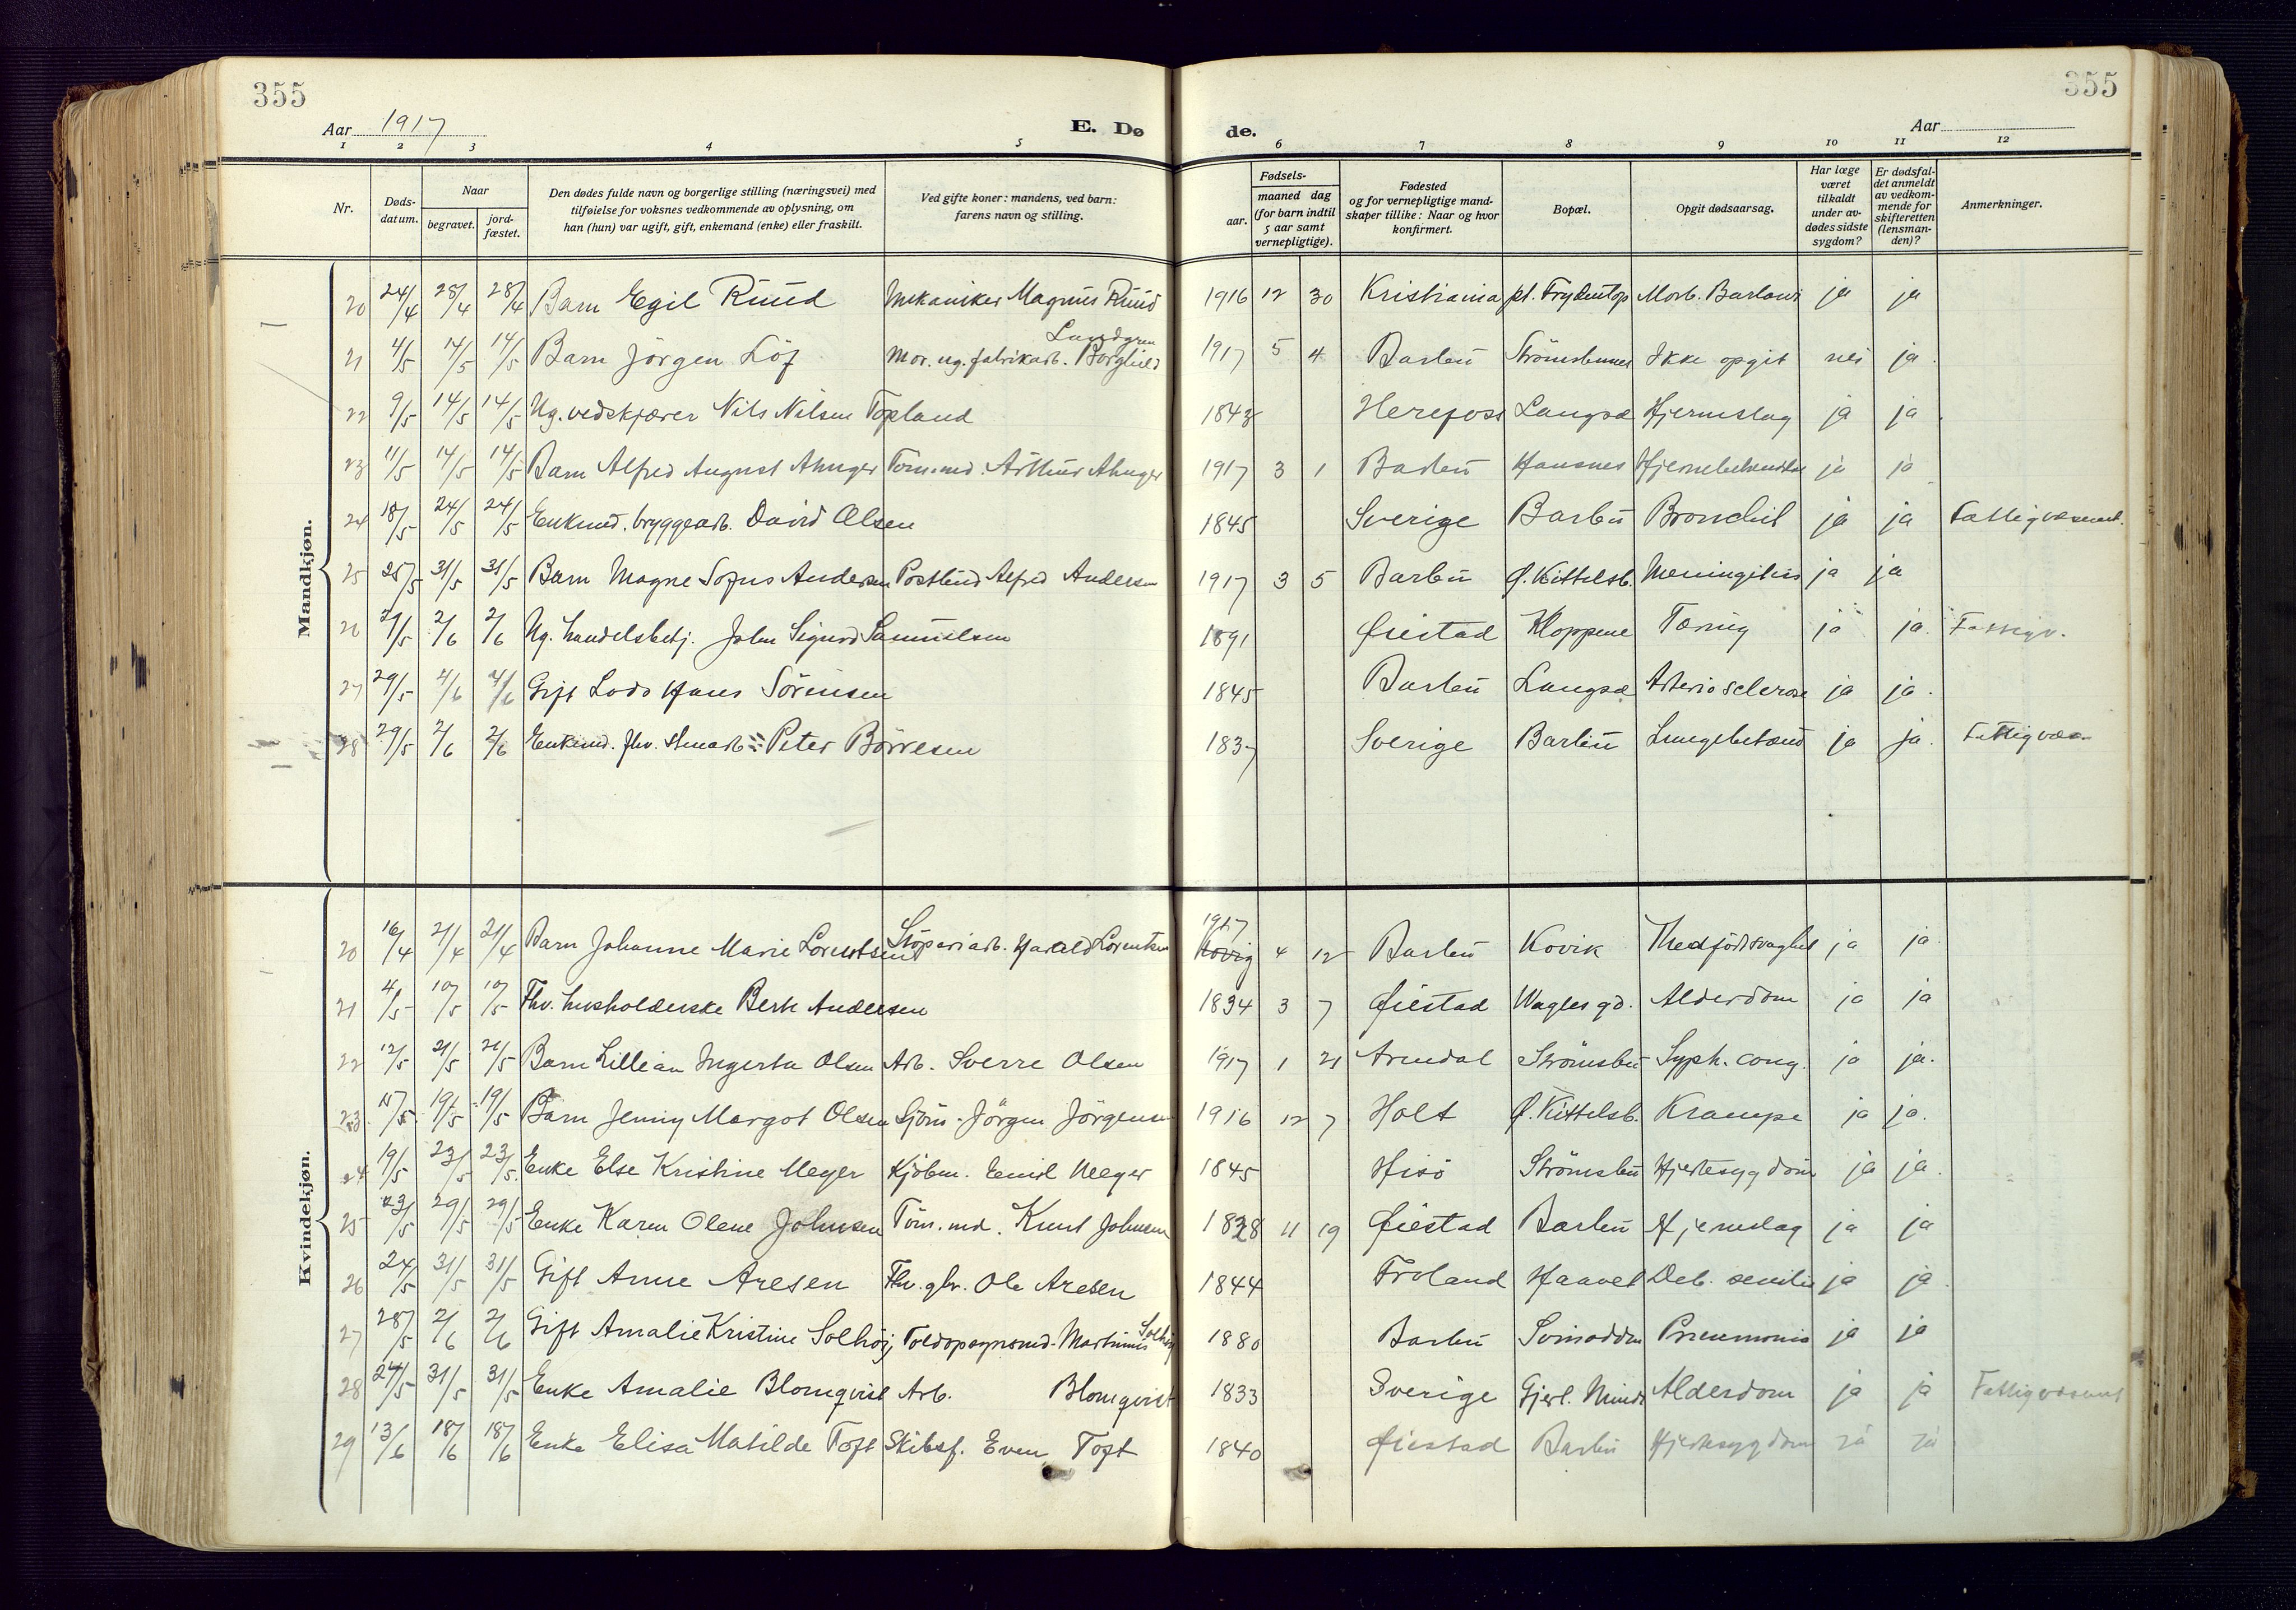 355
355
Aar 1917
E. Dø
de.
Aar
1 2 3 4 5 6 7 8 9 10 11 12
Nr.
Døds-datum.
Naar
begravet.
jord-fæstet.
Den dødes fulde navn og borgerlige stilling (næringsvei) med
tilføielse for voksnes vedkommende av oplysning, om
han (hun) var ugift, gift, enkemand (enke) eller fraskilt.
Ved gifte koner: mandens, ved barn:
farens navn og stilling.
Fødsels-
aar.
maaned dag
(for barn indtil
5 aar samt
vernepligtige).
Fødested
og for vernepligtige mand-
skaper tillike: Naar og hvor
konfirmert.
Bopæl.
Opgit dødsaarsag.
Har læge
været
tilkaldt
under av-
dødes sidste
sygdom?
Er dødsfal-
det anmeldt
av vedkom-
mende for
skifteretten
(lensman-
den)?
Anmerkninger.
Mandkjøn.
20 24/4 28/4 28/4 Barn Egil Ruud Mekaniker Magnus Ruud 1916 12 30 Kristiania pt. Morb. Barlowi ja ja
Lundgren
21 4/5 14/5 14/5 Barn Jörgen Löf Mor. ug. fabrikarb. Borghild 1917 5 4 Barbu Strömsbunes Ikke opgit nei ja.
22 9/5 14/5 14/5 Ug. vedskjærer Nils Nilsen Topland 1843 Herefoss Langsæ Hjerneslag ja ja.
23 11/5 14/5 14/5 Barn Alfred August Ahnger Töm.md. Arthur Ahnger 1917 3 1 Barbu Hansnes ja ja
24 18/5 24/5 24/5 Enkmd. bryggearb. David Olsen 1845 Sverige Barbu Bronchit ja ja Fattigvæsenet.
25 25/5 31/5 31/5 Barn Magne Sofus Andersen Postbud Alfred Andersen 1917 3 5 Barbu Ø. Kittelsb. Meningitis ja ja
26 27/5 2/6 2/6 Ug. handelsbetj. John Sigurd Samuelsen 1891 Øiestad Kloppene Tæring ja ja. Fattigv.
27 29/5 4/6 4/6 Gift Lods Hans Sörensen 1845 Barbu Langsæ Arteriosclerose ja ja.
28 29/5 2/6 2/6 Enkemd. fhv. stuearb. Peter Börresen 1837 Sverige Barbu Lungebetænd ja ja. Fattigvæs.
Kvindekjøn.
1917
20 16/4 21/4 21/4 Barn Johanne Marie Lorentsen Stöperiarb. Harald Lorentsen Kovig 4 12 Barbu Kovik Medfödt svaghet ja ja.
21 4/5 10/5 10/5 Fhv. husholderske Berte Andersen 1834 3 7 Øiestad Wagles gd. Alderdom ja ja
22 12/5 21/5 21/5 Barn Lillian Ingerta Olsen Arb. Sverre Olsen 1917 1 21 Arendal Strömsbu Syph. cong. ja ja.
23 15/5 19/5 19/5 Barn Jenny Margot Olsen Sjöm. Jörgen Jörgensen 1916 12 7 Holt Ø. Kittelsb. Krampe ja ja.
24 19/5 23/5 23/5. Enke Else Kristine Meyer Kjöbm. Emil Meyer 1845 Hisö Strömsbu Hjertesygdom ja ja.
25 23/5 29/5 29/5 Enke Karen Olene Johnsen Töm. md. Knut Johnsen 1828 11 19 Øiestad Barbu Hjerneslag ja ja
26 24/5 31/5 31/5 Gift Anne Aresen Fhv. gbr. Ole Aresen 1844 Froland Haavet Deb. senilis ja ja.
27 28/5 2/6 2/6 Gift Amalie Kristine Solhöi, Toldopsynsmd. Martinius Solhöi 1880 Barbu Svinodden Pneumonia ja ja
28 24/5 31/5 31/5 Enke Amalie Blomqvist Arb. Blomqvist 1833 Sverige Gjerl. Minde Alderdom ja ja Fattigvæsenet
29 13/6 18/6 18/6 Enke Elisa Matilde Toft Skibsf. Even Toft 1840 Øiestad Barbu Hjertesygdom ja ja